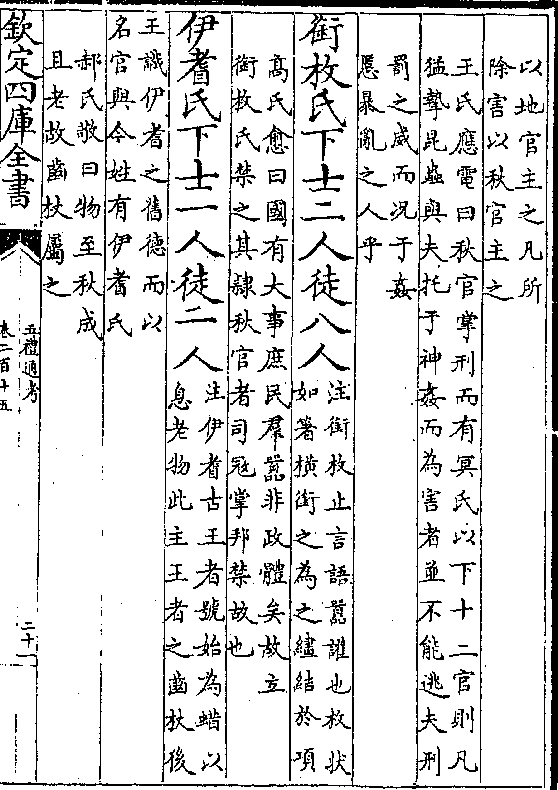 以地官主之凡所
除害以秋官主之
王氏應電曰秋官掌刑而有冥氏以下十二官則凡
猛摯昆蟲與夫托于神姦而為害者並不能逃夫刑
罰之威而況于姦
慝暴亂之人乎
銜枚氏下士二人徒八人
注銜枚止言語囂讙也枚狀
如箸橫銜之為之繣結於項
高氏愈曰國有大事庶民羣囂非政體矣故立
銜枚氏禁之其隸秋官者司寇掌邦禁故也
伊耆氏下士一人徒二人
注伊耆古王者號始為蜡以
息老物此主王者之齒杖後
王識伊耆之舊德而以
名官與今姓有伊耆氏
郝氏敬曰物至秋成
且老故齒杖屬之
欽定四庫全書
五禮通考
卷二百十五
二十一